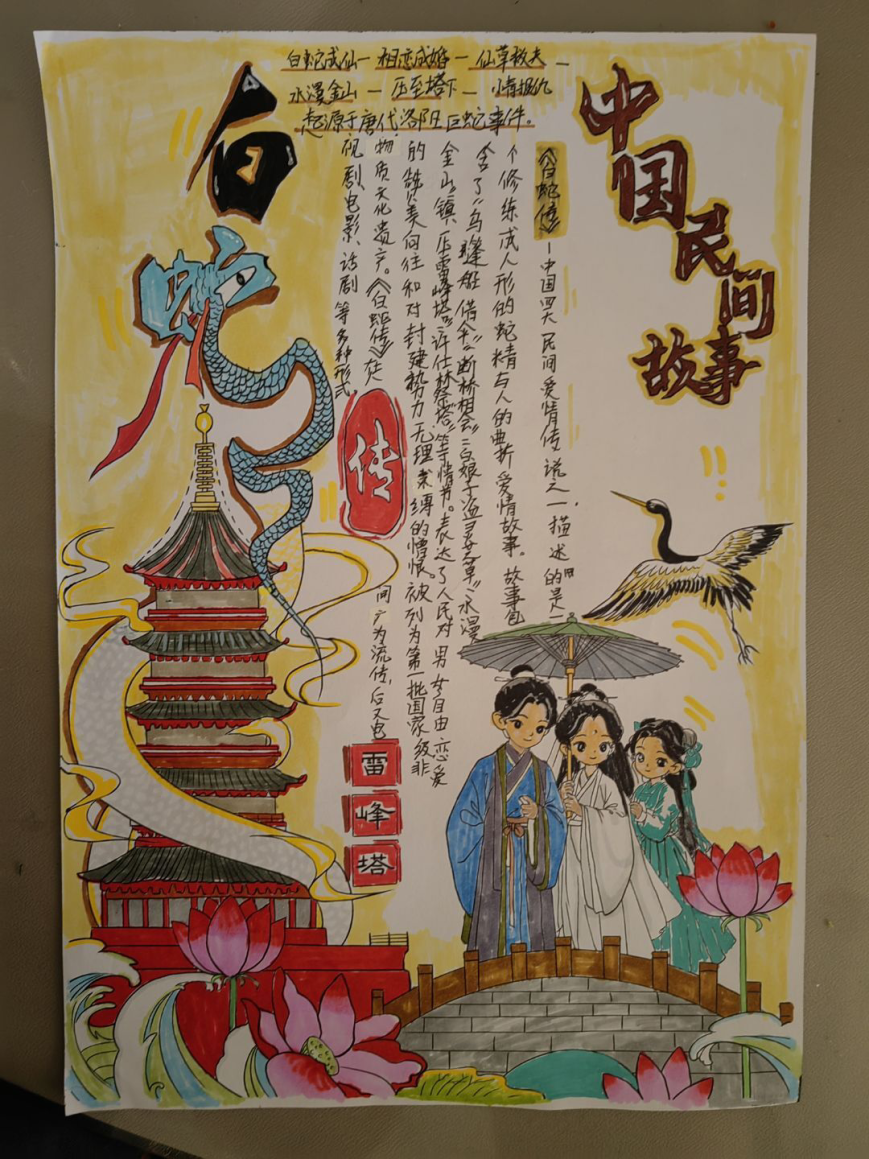 中国民间故事
白蛇传
白蛇成仙－相恋成婚－仙草救夫－
水漫金山－压至塔下－
起源于唐代洛阳巨蛇事件。
《白蛇传》－中国四大民间爱情传说之一，描述的是一
个修练成人形的蛇精与人的曲折爱情故事。故事包
含了“乌篷船借伞”“断桥相会”“白娘子盗灵芝草”“水漫
金山”“镇压雷峰塔”“许仕林祭塔”等情节。表达了人民对男女自由恋爱
的赞美向往和对封建势力无理束缚的憎恨。被列为第一批国家级非
物质文化遗产。《白蛇传》在民间广为流传，后又
视剧、电影、话剧等多种形式
雷峰塔